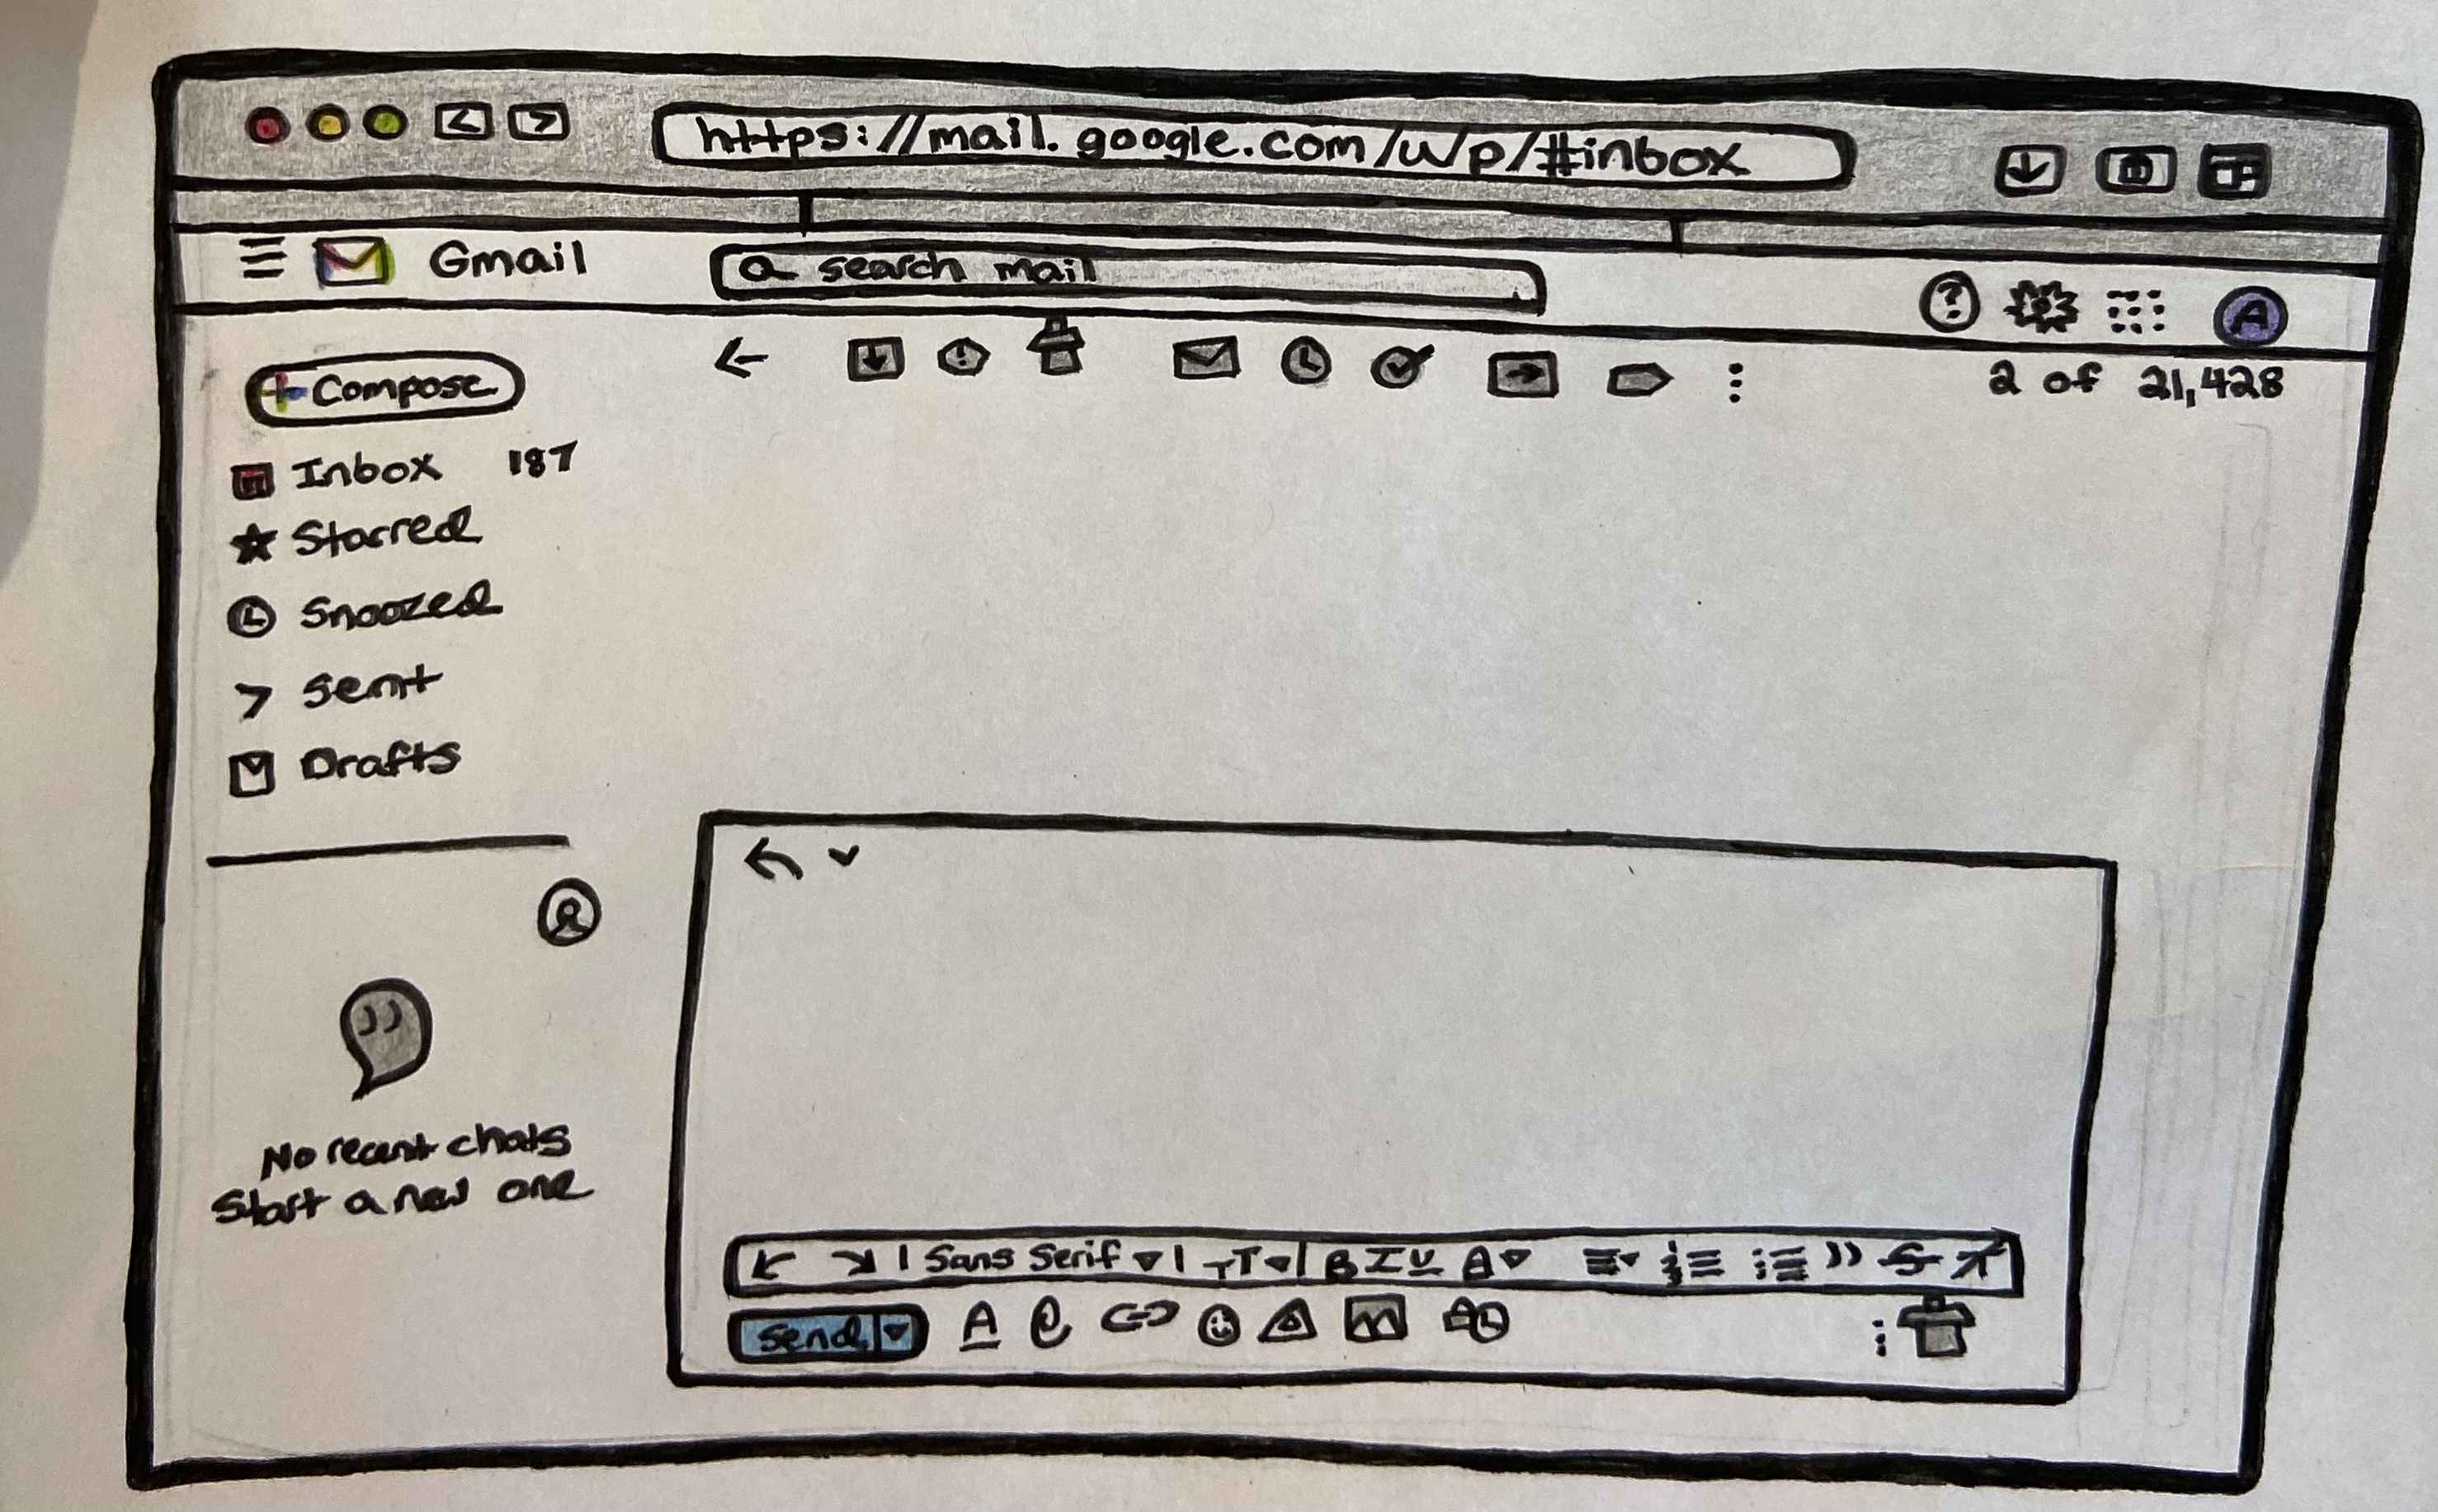 https://mail.google.com/w/p/#inbox
Gmail
search mail
? A
+Compose
2 of 21,428
Inbox 187
Starred
Snoozed
sent
Drafts
No recent chats
Start a new one
Sans Serif TT B I U A S
send A